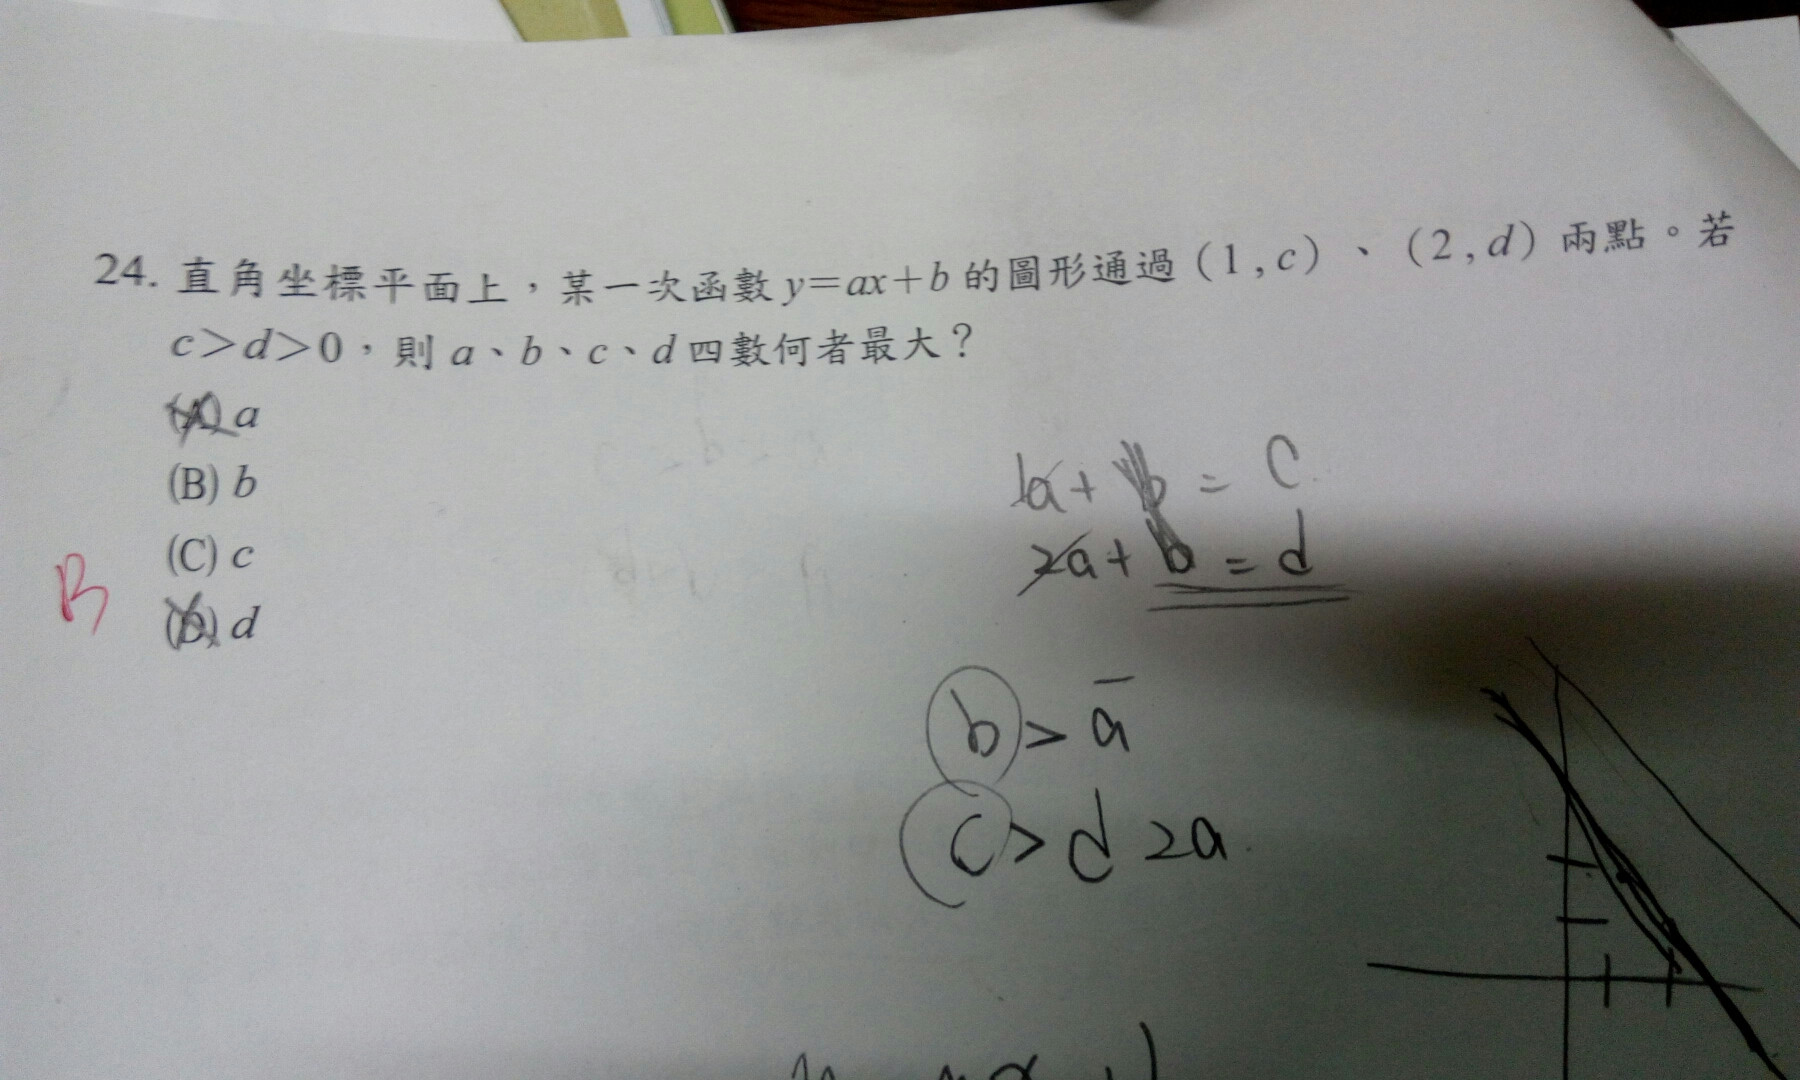 24. 直角坐標平面上，某一次函數 y=ax+b 的圖形通過 (1,c)、(2,d) 兩點。若
c>d>0，則 a、b、c、d 四數何者最大？
(A) a
(B) b
(C) c
(D) d
B
1a + b = c
2a + b = d
b > a
c > d 2a